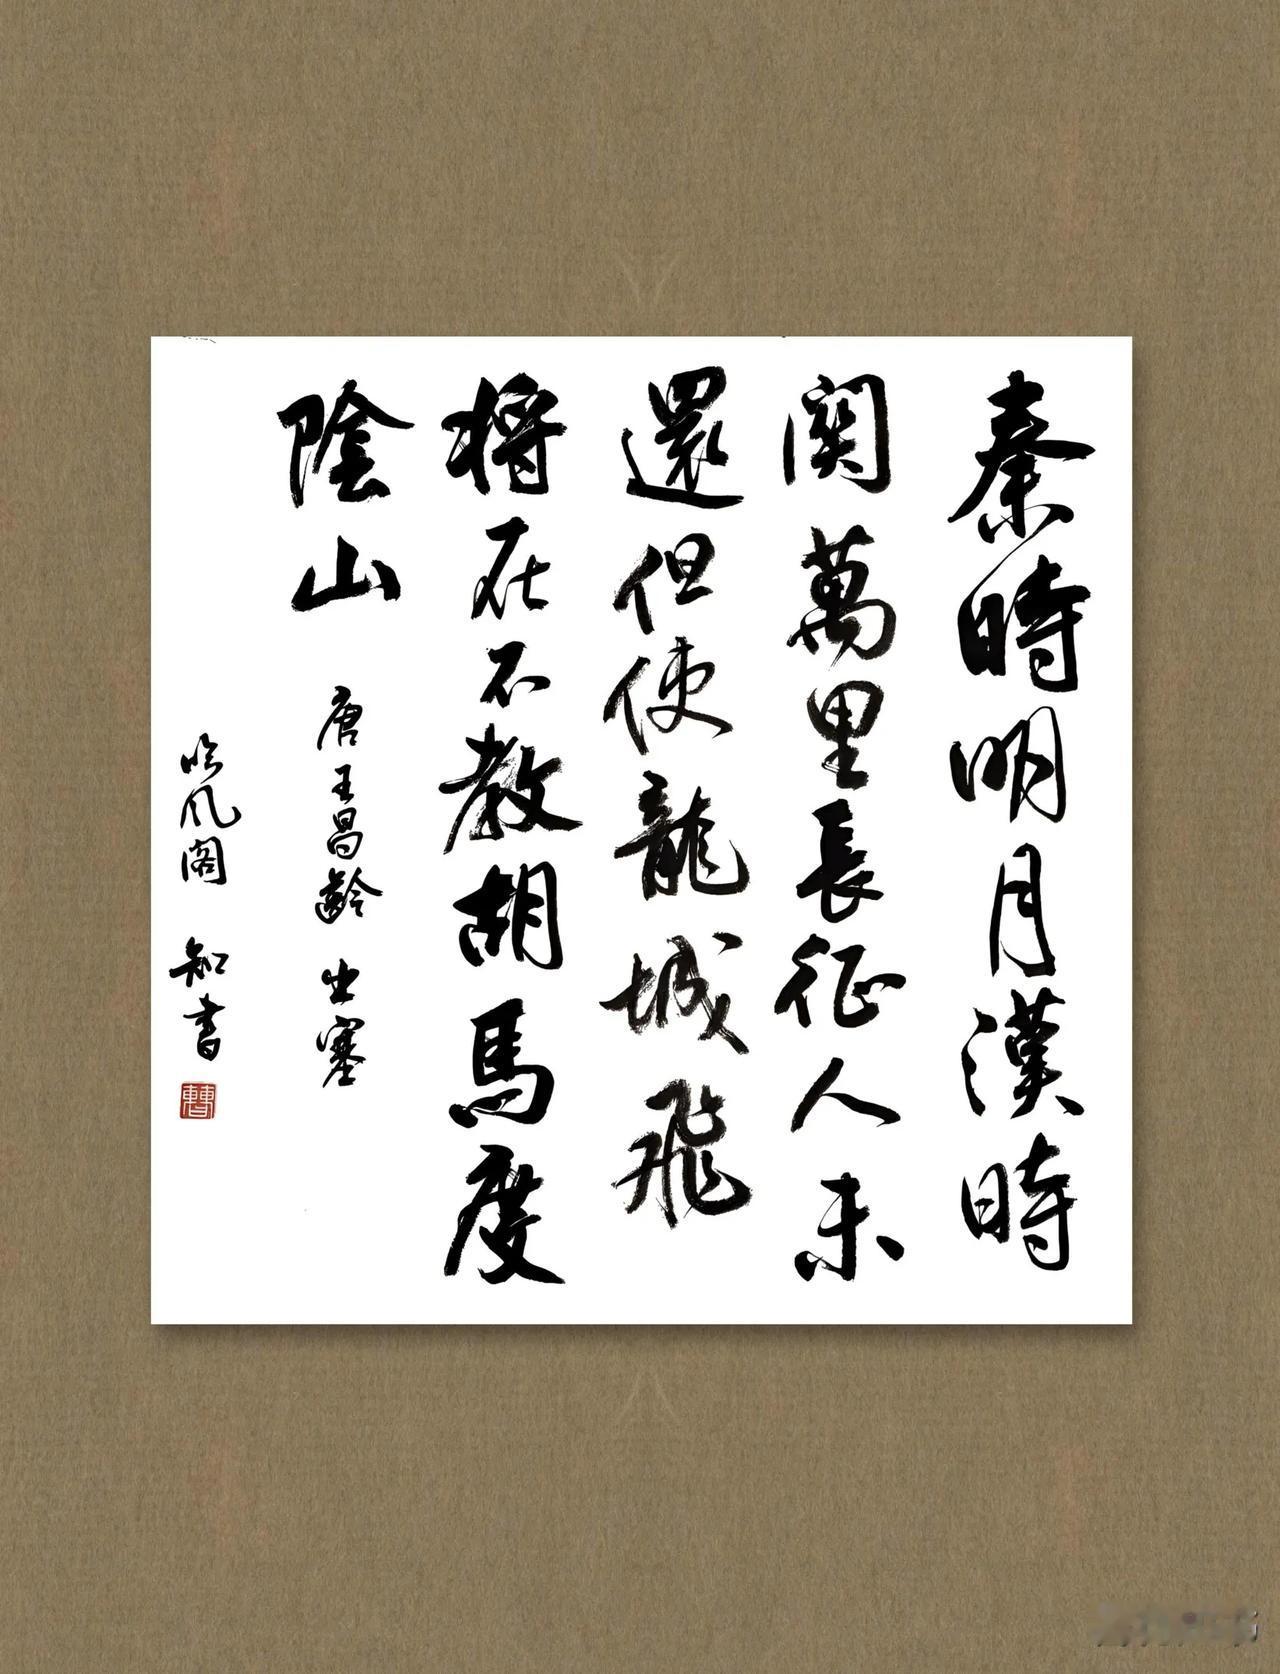 秦時明月漢時
関萬里長征人未
還但使龍城飛
将在不教胡馬度
陰山 唐王昌齡 出塞
吹风阁 知書